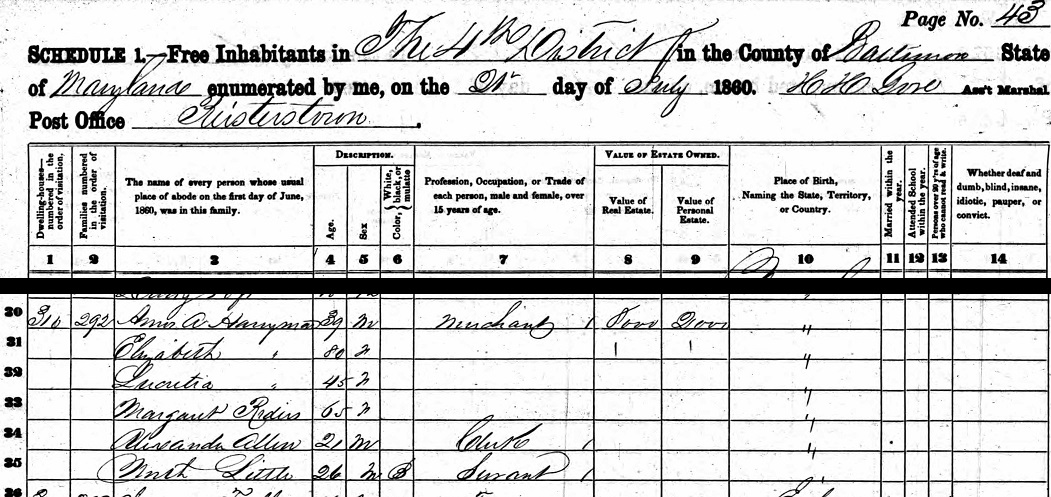 Page No. 43
SCHEDULE 1.—Free Inhabitants in The 4th District in the County of Baltimore State
of Maryland enumerated by me, on the 21st day of July 1860. H H Gore Ass't Marshal.
Post Office Reisterstown.
Dwelling-houses—numbered in the order of visitation.
Families numbered in the order of visitation.
The name of every person whose usual place of abode on the first day of June, 1860, was in this family.
DESCRIPTION.
Age.
Sex
Color, { White, black, or mulatto
Profession, Occupation, or Trade of each person, male and female, over 15 years of age.
VALUE OF ESTATE OWNED.
Value of Real Estate.
Value of Personal Estate.
Place of Birth, Naming the State, Territory, or Country.
Married within the year.
Attended School within the year.
Persons over 20 y'rs of age who cannot read & write.
Whether deaf and dumb, blind, insane, idiotic, pauper, or convict.
1 2 3 4 5 6 7 8 9 10 11 12 13 14
30 310 292 Amos A Harryman 39 m Merchant 1 8000 2000 "
31 Elizabeth " 80 f "
32 Lucretia " 45 f "
33 Margaret 65 f "
34 Alexander Allen 21 m Clerk 1 "
35 Little 26 m B Servant 1 "